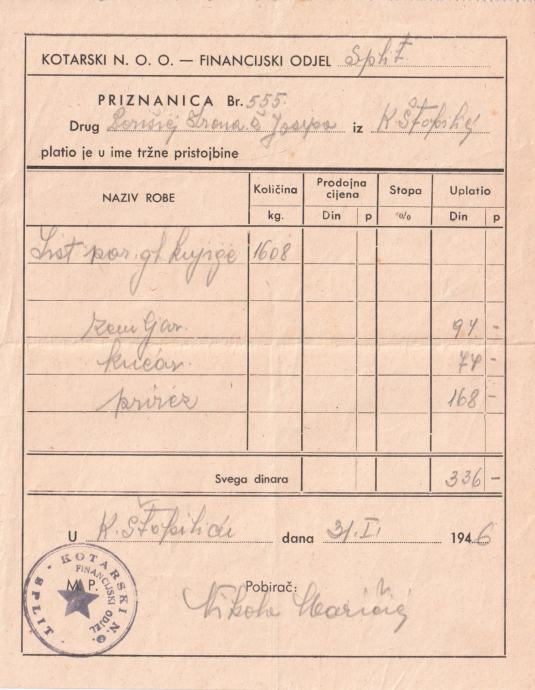 KOTARSKI N. O. O. — FINANCIJSKI ODJEL Split
PRIZNANICA Br. 555
Drug Josipa iz K Štafilić
platio je u ime tržne pristojbine
NAZIV ROBE Količina Prodojna cijena Stopa Uplatio
kg. Din p % Din p
List por. gl. knjige 1608
94 -
kućar. 74 -
prirez 168 -
Svega dinara 336 -
U K. Štafiliću dana 31.I. 1946
M. P. Pobirač:
Nikola
KOTARSKI N.O. SPLIT
FINANCIJSKI ODJEL